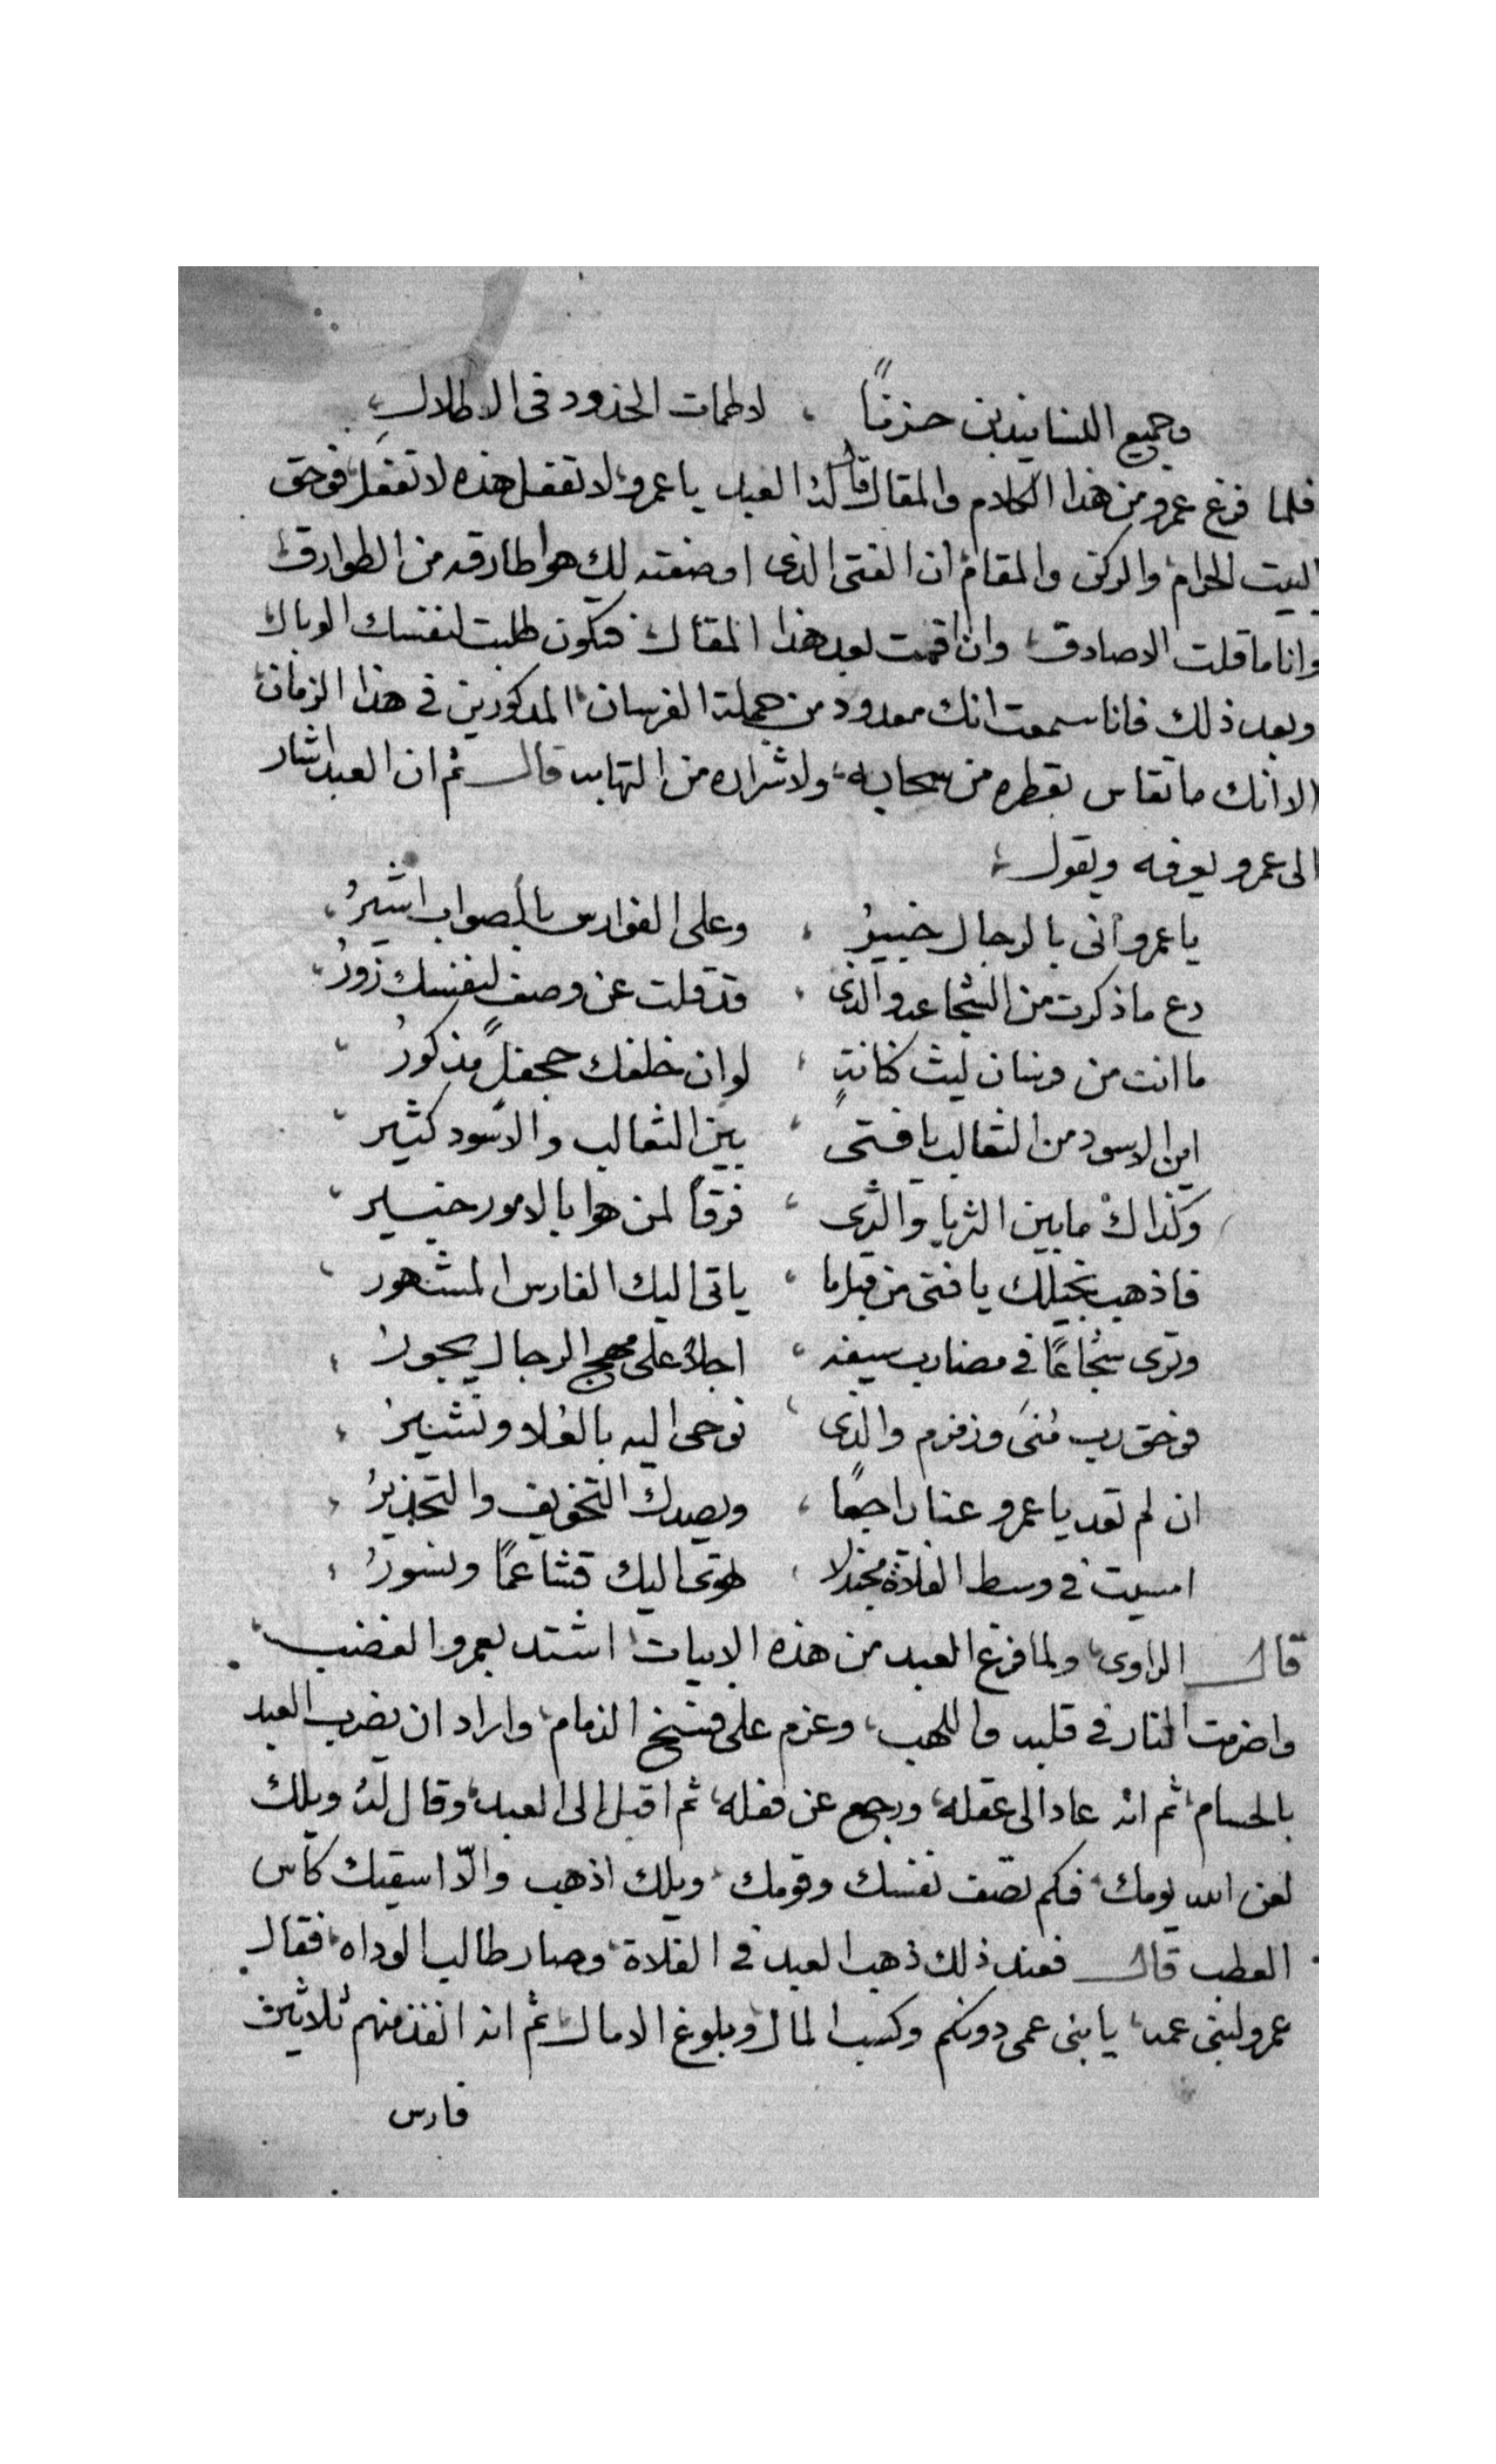 وجميع النسا يندبن حزنًا ، لاطمات الخدود فى الاطلال
فلما فرغ عمرو من هذا الكلام والمقال قال له العبد يا عمرو لا تفعل هذه لا تفعل فوحق
البيت الحرام والركن والمقام ان الفتى الذى اوصفته لك هوا طارقه من الطوارق
وانا ما قلت الا صادق وان اقمت بعد هذا المقال فتكون طلبت لنفسك الوبال
وبعد ذلك فانا سمعت انك معدود من جملة الفرسان المذكورين فى هذا الزمان
الا انك ما تقاس بقطره من سحابه ولا شراره من التهابه قال ثم ان العبد اشار
الى عمرو يعرفه ويقول
يا عمرو انى بالرجال خبيرُ ، وعلى الفوارس بالصواب اشيرُ
دع ما ذكرت من الشجاعه والذى ، قد قلت عن وصف لنفسك زورُ
ما انت من فرسان ليث كنانةٍ ، لو ان خلفك جحفلً مذكورُ
اين الاسود من الثعالب يا فتى ، بين الثعالب والاسود كثير
وكذاك ما بين الثريا والثرى ، فرقاً لمن هوا بالامور خبير
فاذهب بخيلك يا فتى من قبل ما ، ياتى اليك الفارس المشهور
وترى شجاعًا فى مضارب سيفه ، اجلاً على مهج الرجال يجورُ
فوحق رب مُنىَ وزمزم والذى ، نوحى اليه بالعُلا ونشيرُ
ان لم تعد يا عمرو عنا راجعًا ، ويصدك التخويف والتحذيرُ
امسيت فى وسط الفلاة مجندلا ، طوى اليك قشاعمًا ونسورُ
قال الراوى ولما فرغ العبد من هذه الابيات اشتد بعمرو الغضب
واضرمت النار فى قلبه واللهب وعزم على فسخ الذمام واراد ان يضرب العبد
بالحسام ثم انه عاد الى عقله ورجع عن فعله ثم اقبل الى العبد وقال له ويلك
لعن الله يومك فكم تصف نفسك وقومك ويلك اذهب والّا اسقيك كأس
العطب قال فعند ذلك ذهب العبد فى الفلاة وصار طالب الوراه فقال
عمرو لبنى عمه يا بنى عمى دونكم وكسب المال وبلوغ الامال ثم انه انفذ منهم ثلاثين
فارس